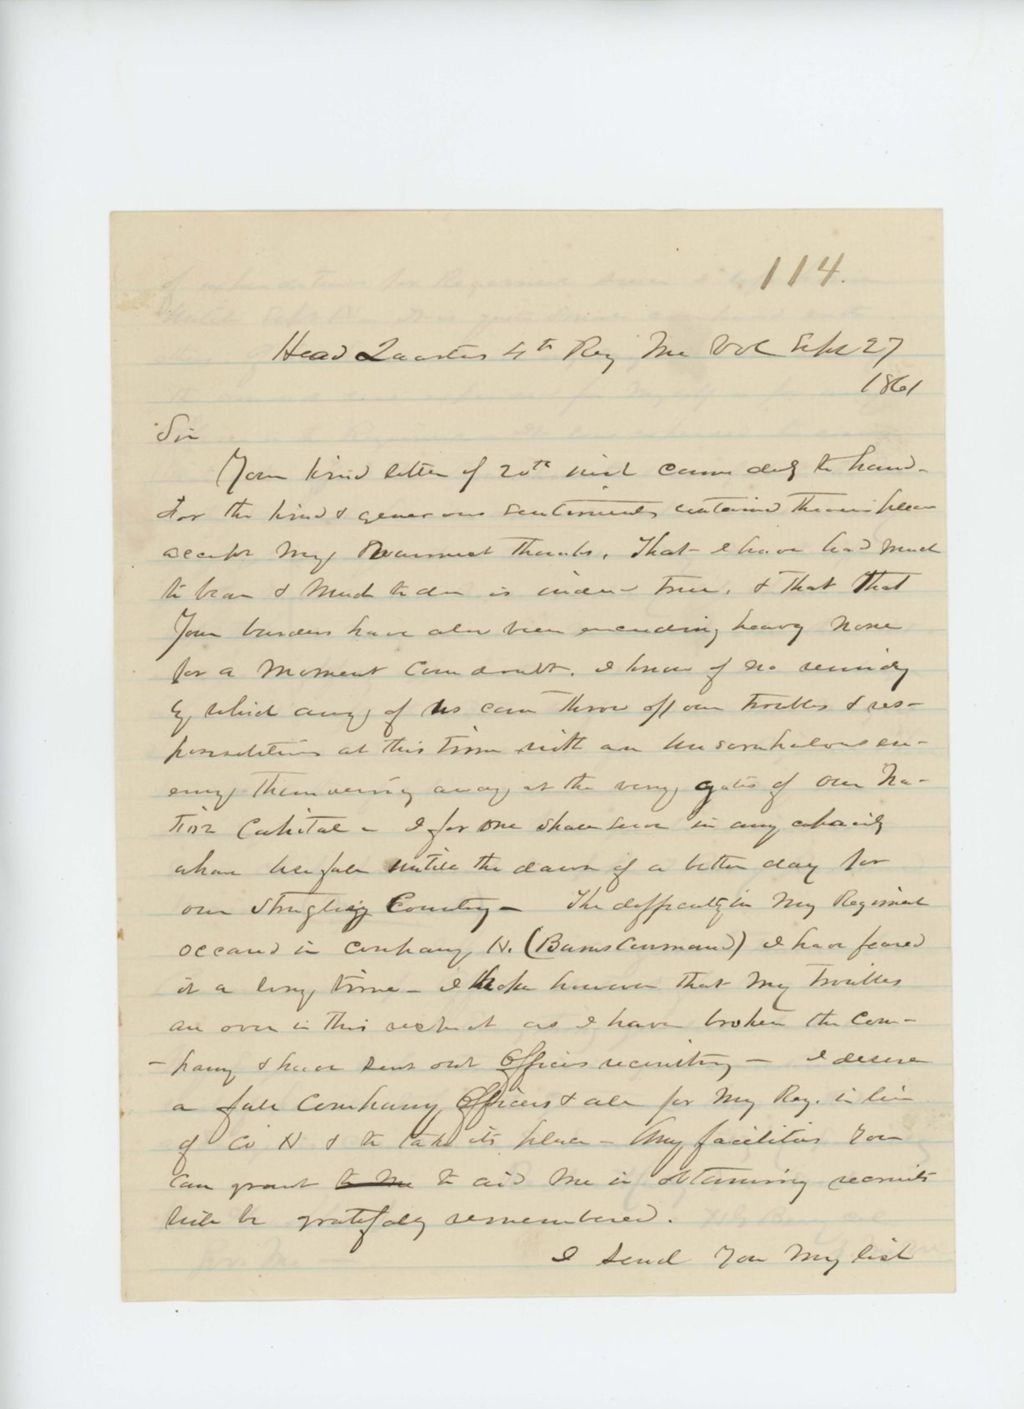 114.
Head Quarters 4th Reg Me Vol Sept 27
1861
Sir
Your kind letter of 20th inst came duly to hand -
For the kind & generous sentiments contained therein please
accept my warmest thanks. That I have had much
to bear & much to do is indeed true, & that that
Your burdens have also been exceeding heavy none
for a moment can doubt. I know of no remidy
by which any of us can throw off our troubles & res-
ponsibilities at this time with an unscrupulous en-
emy thundering away at the very gates of our Na-
tion Capital - I for one shall serve in any capacity
where usefull untill the dawn of a better day for
our strugling Country - The difficulty in my Regiment
occured in company H. (Burns Command) I have feared
it a long time - I hope however that my troubles
are over in this respect as I have broken the com-
- pany & have sent out Officers recruiting - I desire
a full company Officers & all for my Reg. in lieu
of Co H & to take its place - Any facilities You
can grant to me to aid me in obtaining recruits
will be gratefully remembered.
I send You my list